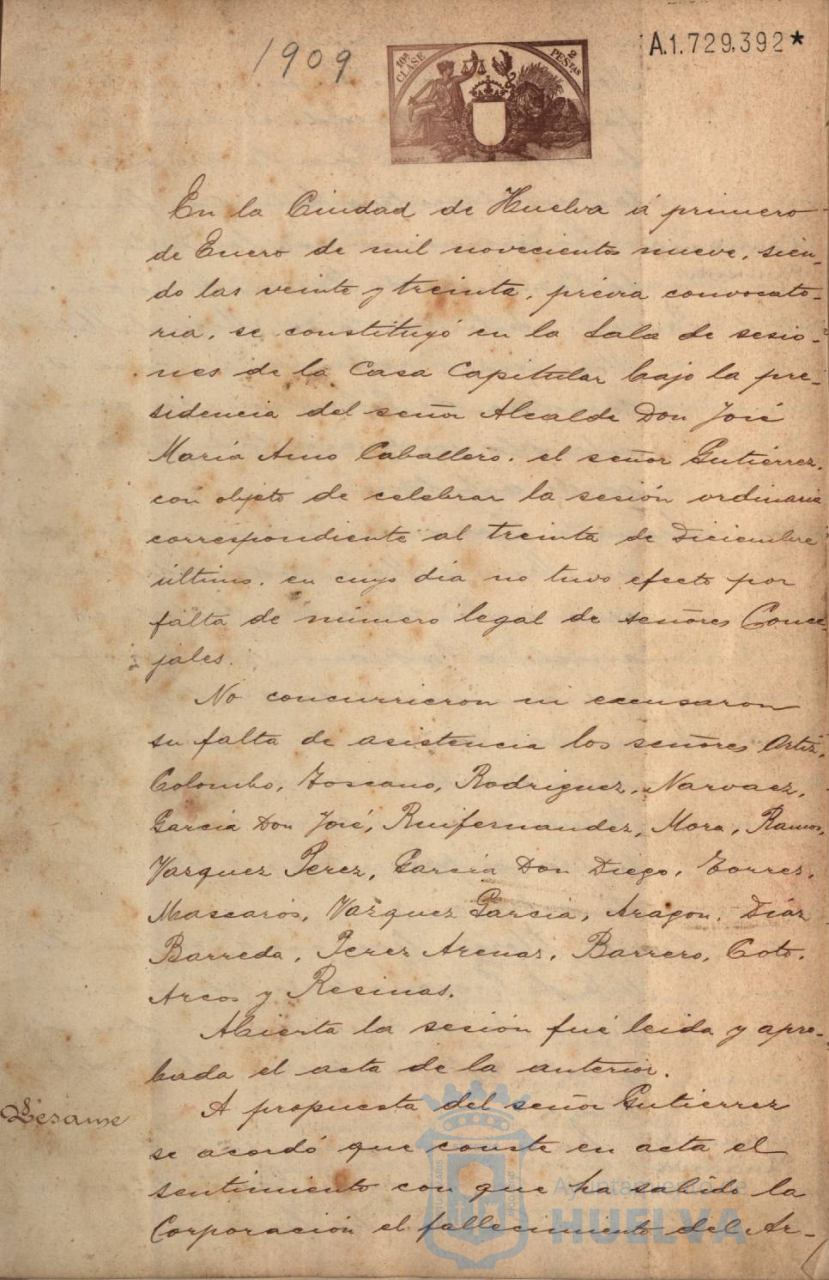 1909
10ª CLASE
2 PESTAS
A.1.729,392*
En la Ciudad de Huelva á primero
de Enero de mil novecientos nueve, sien-
do las veinte y treinta, prévia convocato-
ria, se constituyó en la Sala de sesio-
nes de la Casa Capitular bajo la pre-
sidencia del señor Alcalde Don José
María Amo Caballero, el señor Gutiérrez,
con objeto de celebrar la sesión ordinaria
correspondiente al treinta de Diciembre
último, en cuyo dia no tuvo efecto por
falta de número legal de señores Conce-
jales.
No concurrieron ni excusaron
su falta de asistencia los señores Ortiz,
Colombo, Toscano, Rodriguez, Narvaez,
García Don José, Ruifernandez, Mora, Ramos,
Vazquez Perez, García Don Diego, Torres,
Mascarós, Vazquez García, Aragon, Díaz
Barreda, Perez Arenas, Barrero, Coto,
Arcos y Resinas.
Abierta la sesión fué leida y apro-
bada el acta de la anterior.
Pésame
A propuesta del señor Gutierrez
se acordó que conste en acta el
sentimiento con que ha sabido la
Corporación el fallecimiento del Ar-
Ayuntamiento de
HUELVA